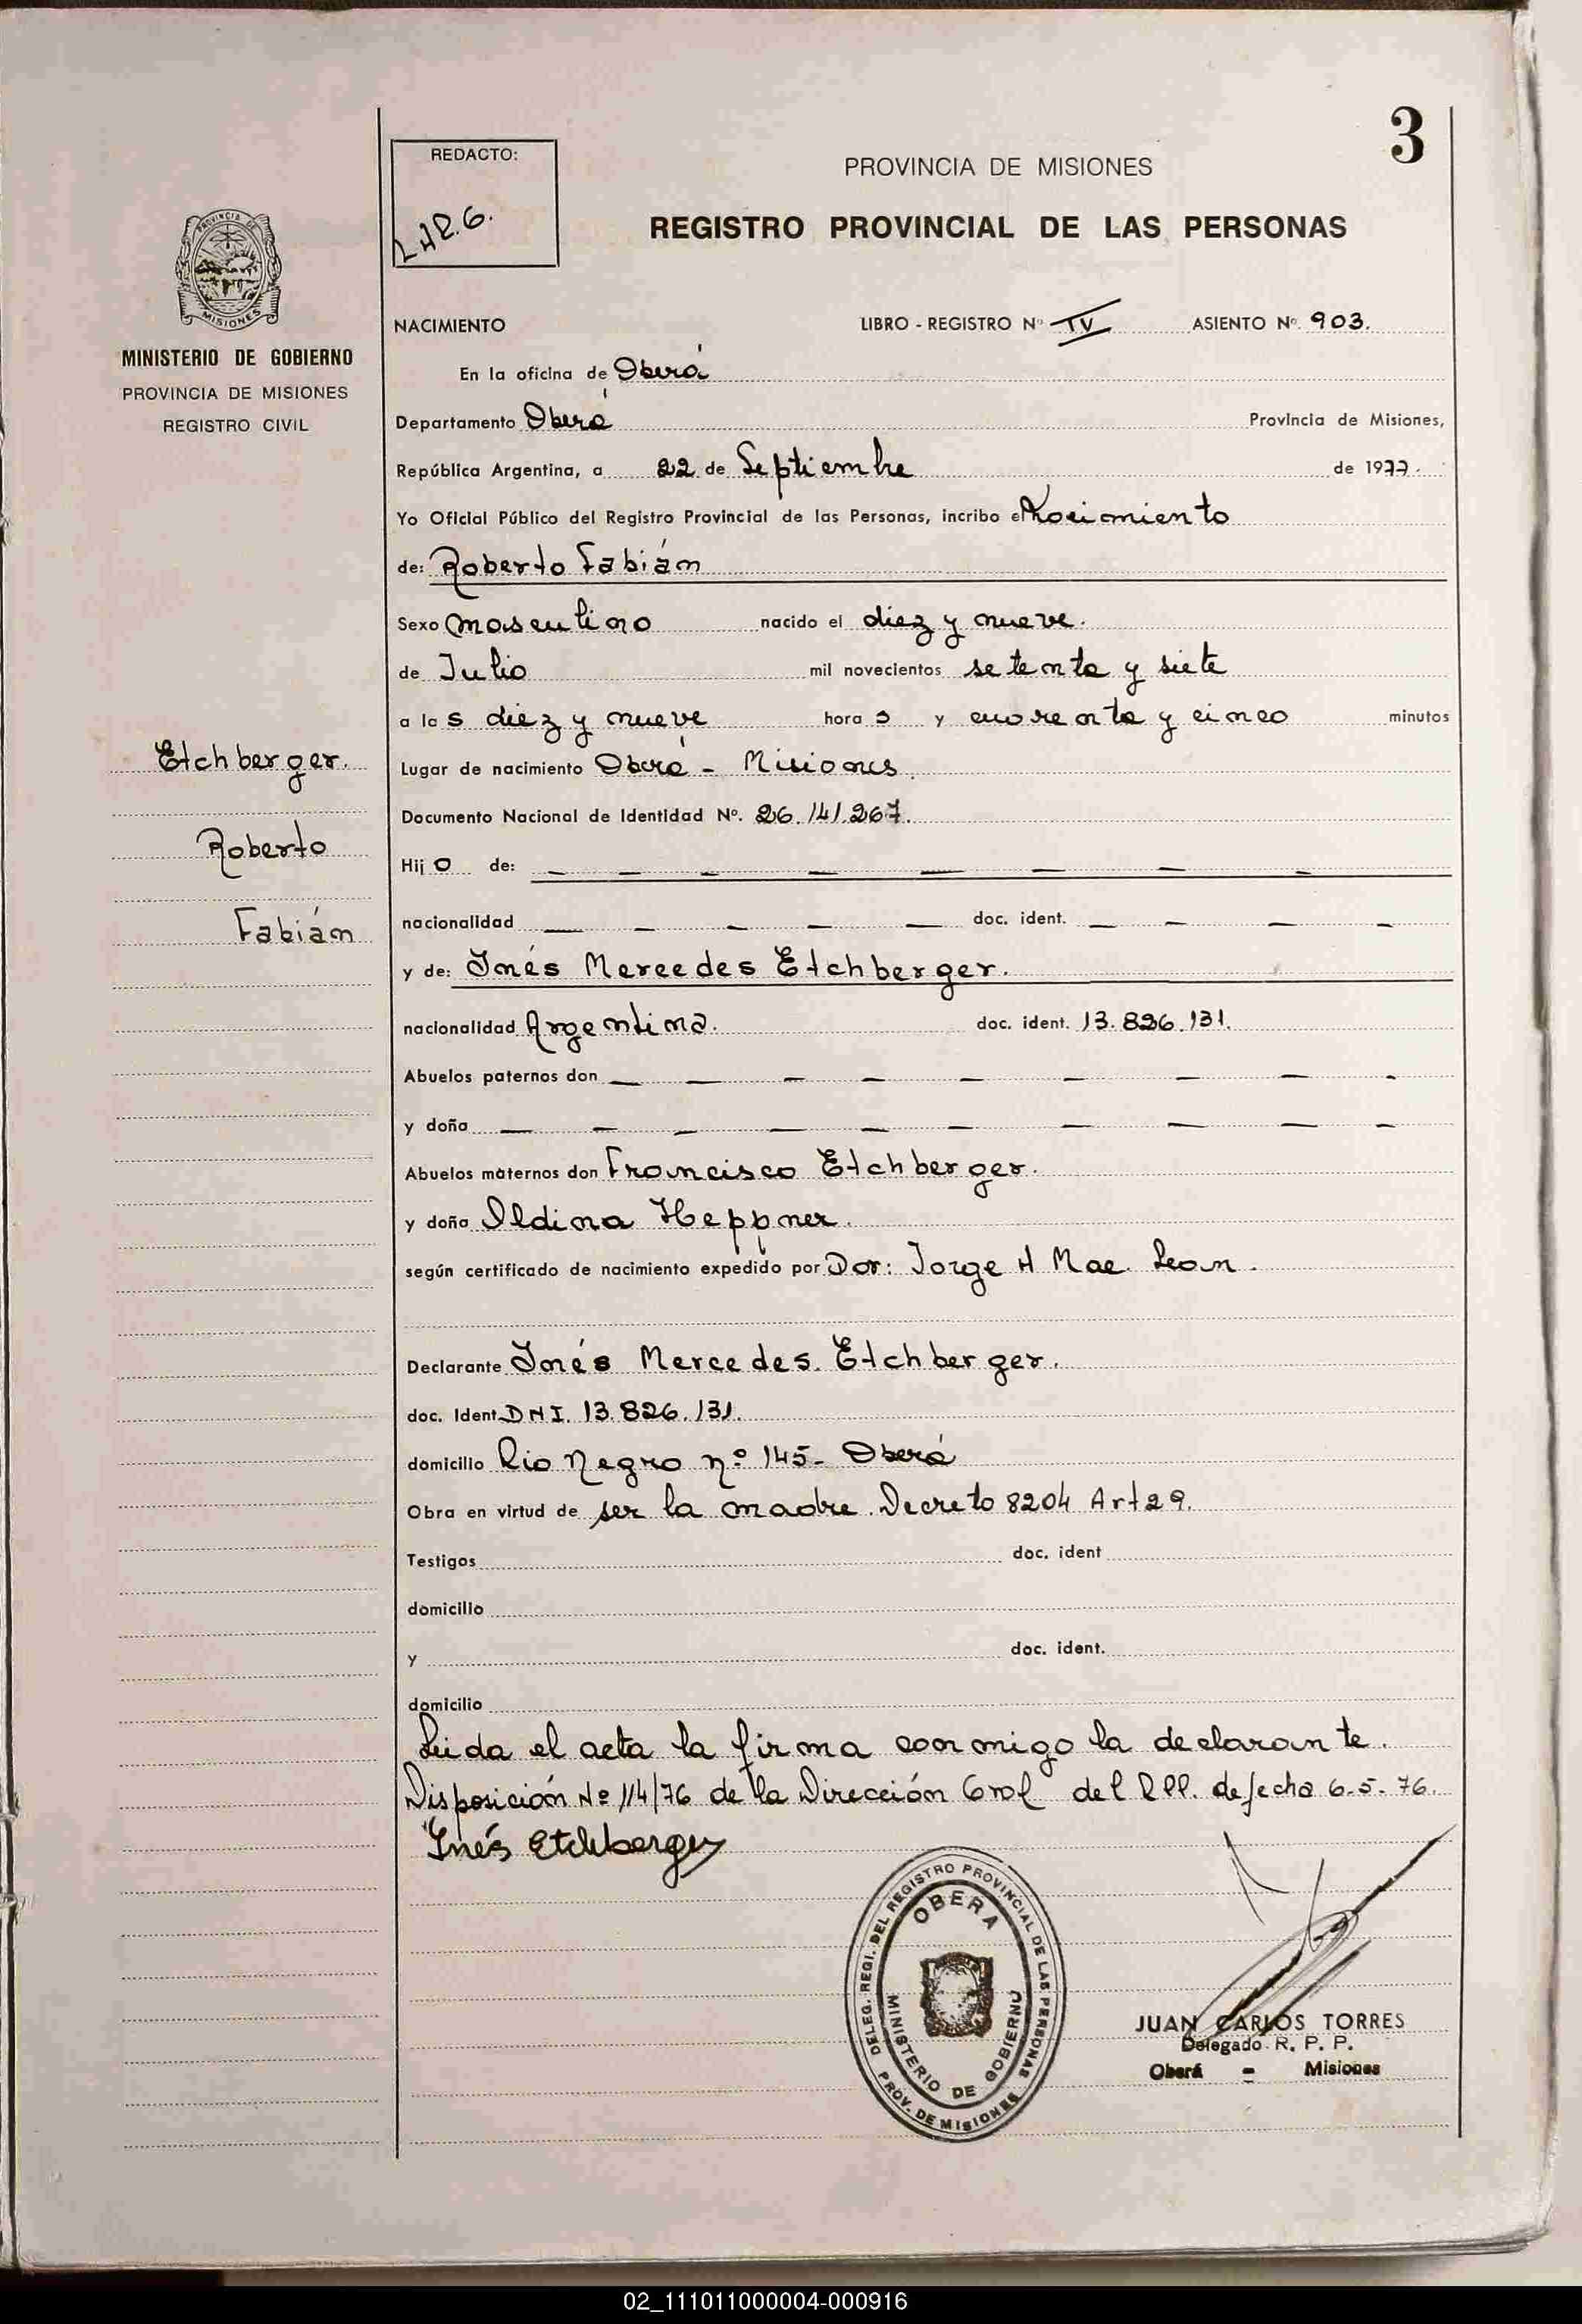 3
REDACTO:
PROVINCIA DE MISIONES
REGISTRO PROVINCIAL DE LAS PERSONAS
PROVINCIA DE
MISIONES
MINISTERIO DE GOBIERNO
PROVINCIA DE MISIONES
REGISTRO CIVIL
NACIMIENTO LIBRO - REGISTRO Nº IV ASIENTO Nº 903.
En la oficina de Oberá
Departamento Oberá Provincia de Misiones,
República Argentina, a 22 de Septiembre de 1977.
Yo Oficial Público del Registro Provincial de las Personas, incribo el Nacimiento
de: Roberto Fabián
Sexo masculino nacido el diez y nueve.
de Julio mil novecientos setenta y siete
a las diez y nueve horas y cuarenta y cinco minutos
Etchberger.
Roberto
Fabián
Lugar de nacimiento Oberá - Misiones
Documento Nacional de Identidad Nº. 26.141.267.
Hijo de: — — — — — — — —
nacionalidad — — — — — doc. ident. — — — —
y de: Inés Mercedes Etchberger.
nacionalidad Argentina. doc. ident. 13.826.131.
Abuelos paternos don — — — — — — — — —
y doña — — — — — — — — — —
Abuelos maternos don Francisco Etchberger.
y doña Ildina Heppner.
según certificado de nacimiento expedido por Dor: Jorge H Mac Lean.
Declarante Inés Mercedes. Etchberger.
doc. Ident. DNI. 13.826.131.
domicilio Rio Negro nº 145- Oberá
Obra en virtud de ser la madre. Decreto 8204 Art 29.
Testigos doc. ident
domicilio
y doc. ident.
domicilio
Leida el acta la firma conmigo la declarante.
Disposición Nº 114/76 de la Dirección Gral del RPP. de fecha 6-5-76.
Inés Etchberger
DELEG. REGI. DEL REGISTRO PROVINCIAL DE LAS PERSONAS
PROV. DE MISIONES
OBERA
MINISTERIO DE GOBIERNO
JUAN CARLOS TORRES
Delegado R. P. P.
Oberá - Misiones
02_111011000004-000916